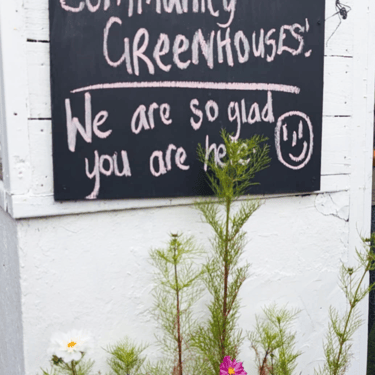 Community
GREENHOUSES!
We are so glad
you are here